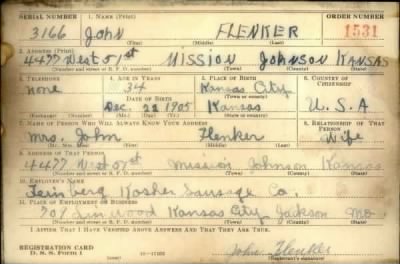 SERIAL NUMBER 1. NAME (Print) ORDER NUMBER
3166 John FLENKER 1531
(First) (Middle) (Last)
2. ADDRESS (Print)
4477 West 51st MISSION Johnson KANSAS
(Number and street or R. F. D. number) (Town) (County) (State)
3. TELEPHONE 4. AGE IN YEARS 5. PLACE OF BIRTH 6. COUNTRY OF CITIZENSHIP
None 34 Kansas City
DATE OF BIRTH (Town or county)
Dec 22 1905 Kansas U.S.A
(Exchange) (Number) (Mo.) (Day) (Yr.) (State or country)
7. NAME OF PERSON WHO WILL ALWAYS KNOW YOUR ADDRESS 8. RELATIONSHIP OF THAT PERSON
Mrs. John Flenker Wife
(Mr., Mrs., Miss) (First) (Middle) (Last)
9. ADDRESS OF THAT PERSON
4477 West 51st Mission Johnson Kansas
(Number and street or R. F. D. number) (Town) (County) (State)
10. EMPLOYER'S NAME
Feinberg Kosher Sausage Co.
11. PLACE OF EMPLOYMENT OR BUSINESS
709 Linwood Kansas City Jackson Mo
(Number and street or R. F. D. number) (Town) (County) (State)
I AFFIRM THAT I HAVE VERIFIED ABOVE ANSWERS AND THAT THEY ARE TRUE.
REGISTRATION CARD
D. S. S. FORM 1 John Flenker
(Registrant's signature)